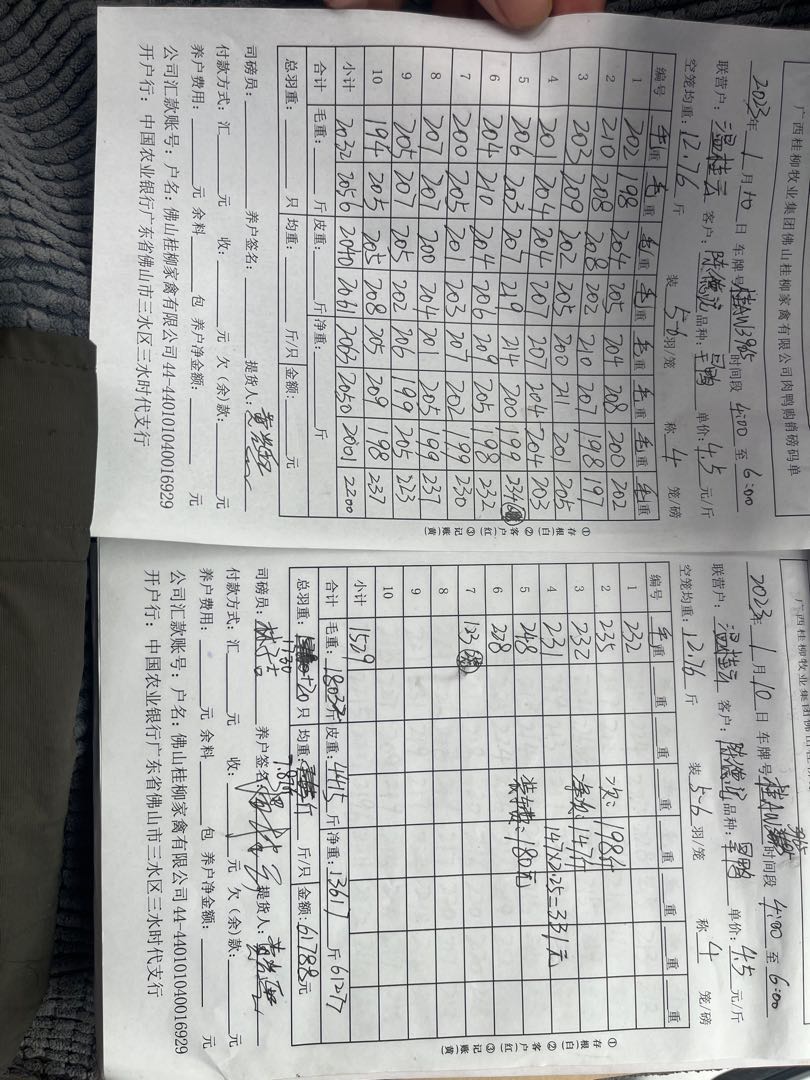 广西桂柳牧业集团佛山桂柳家禽有限公司肉鸭购销磅码单
2023年 1月10日 车牌号桂AW3965 时间段 4:00 至 6:00
联营户：温桂云 客户：陈德记 品种：王鸭 单价：4.5 元/斤
空笼均重：12.76 斤 装 5-6 羽/笼 称 4 笼/磅
编号 毛重 毛重 毛重 毛重 毛重 毛重 毛重 毛重
1 202 198 204 205 204 208 200 202
2 210 208 208 202 210 207 198 197
3 203 209 202 205 200 211 201 205
4 201 204 204 207 207 204 204 203
5 206 203 207 219 214 200 199 234
6 204 210 204 206 209 205 198 232
7 200 205 201 203 207 202 199 230
8 207 201 200 204 201 205 199 237
9 205 207 205 202 206 199 205 223
10 194 205 205 208 205 209 198 237
小计 2032 2056 2040 2061 2063 2050 2001 2200
合计 毛重： 斤 皮重： 斤 净重： 斤
总羽重： 只 均重： 斤/只 金额： 元
司磅员： 养户签名： 提货人：
付款方式：汇 元 收： 元 欠（余）款： 元
养户费用： 元 余料 包 养户净金额： 元
公司汇款账号：户名：佛山桂柳家禽有限公司 44-440101040016929
开户行：中国农业银行广东省佛山市三水区三水时代支行
①存根(白) ②客户(红) ③记账(黄)
广西桂柳牧业集团佛山
2023年 1月10日 车牌号桂AW 时间段 4:00 至 6:00
联营户：温桂云 客户：陈德记 品种：王鸭 单价：4.5 元/斤
空笼均重：12.76 斤 装 5-6 羽/笼 称 4 笼/磅
编号 毛重 重 重 重 重 重 重 重
1 232
2 235 二次：198斤
3 232 净次：147斤
4 231 147×2.25=331元
5 248 装车费：180元
6 228
7 123
8
9
10
小计 1529
合计 毛重：18032斤 皮重：4415斤 净重：13617 斤 61277
总羽重： 只 均重： 斤/只 金额：61788元
司磅员： 养户签名： 提货人：
付款方式：汇 元 收： 元 欠（余）款： 元
养户费用： 元 余料 包 养户净金额： 元
公司汇款账号：户名：佛山桂柳家禽有限公司 44-440101040016929
开户行：中国农业银行广东省佛山市三水区三水时代支行
①存根(白) ②客户(红) ③记账(黄)